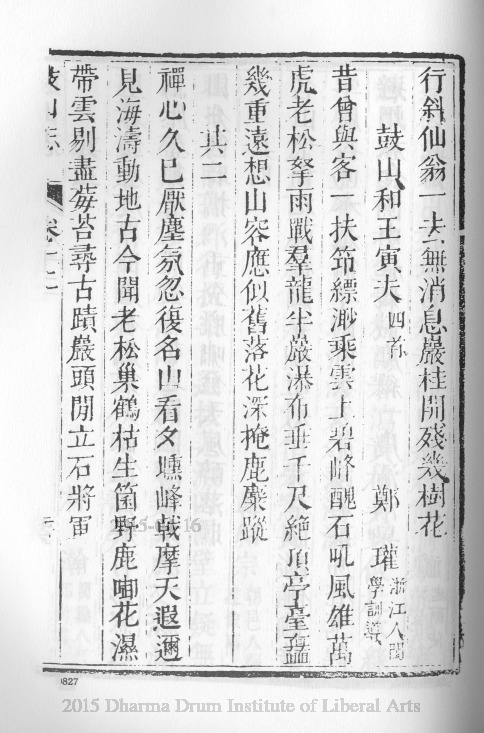 行斜仙翁一去無消息巖桂開殘幾樹花
鼓山和王寅夫四首 鄭瓘浙江人閩學訓導
昔曾與客一扶笻縹渺乘雲上碧峰醜石吼風雄萬
虎老松拏雨戰羣龍半巖瀑布垂千尺絶頂亭臺疊
幾重遠想山容應似舊落花深掩鹿麋蹤
其二
禪心久已厭塵氛忽復名山看夕曛峰戟摩天遐邇
見海濤動地古今聞老松巢鶴枯生箇野鹿啣花濕
帶雲剔盡莓苔尋古蹟巖頭閒立石將軍
鼓山志 卷十二
0827
2015 Dharma Drum Institute of Liberal Arts